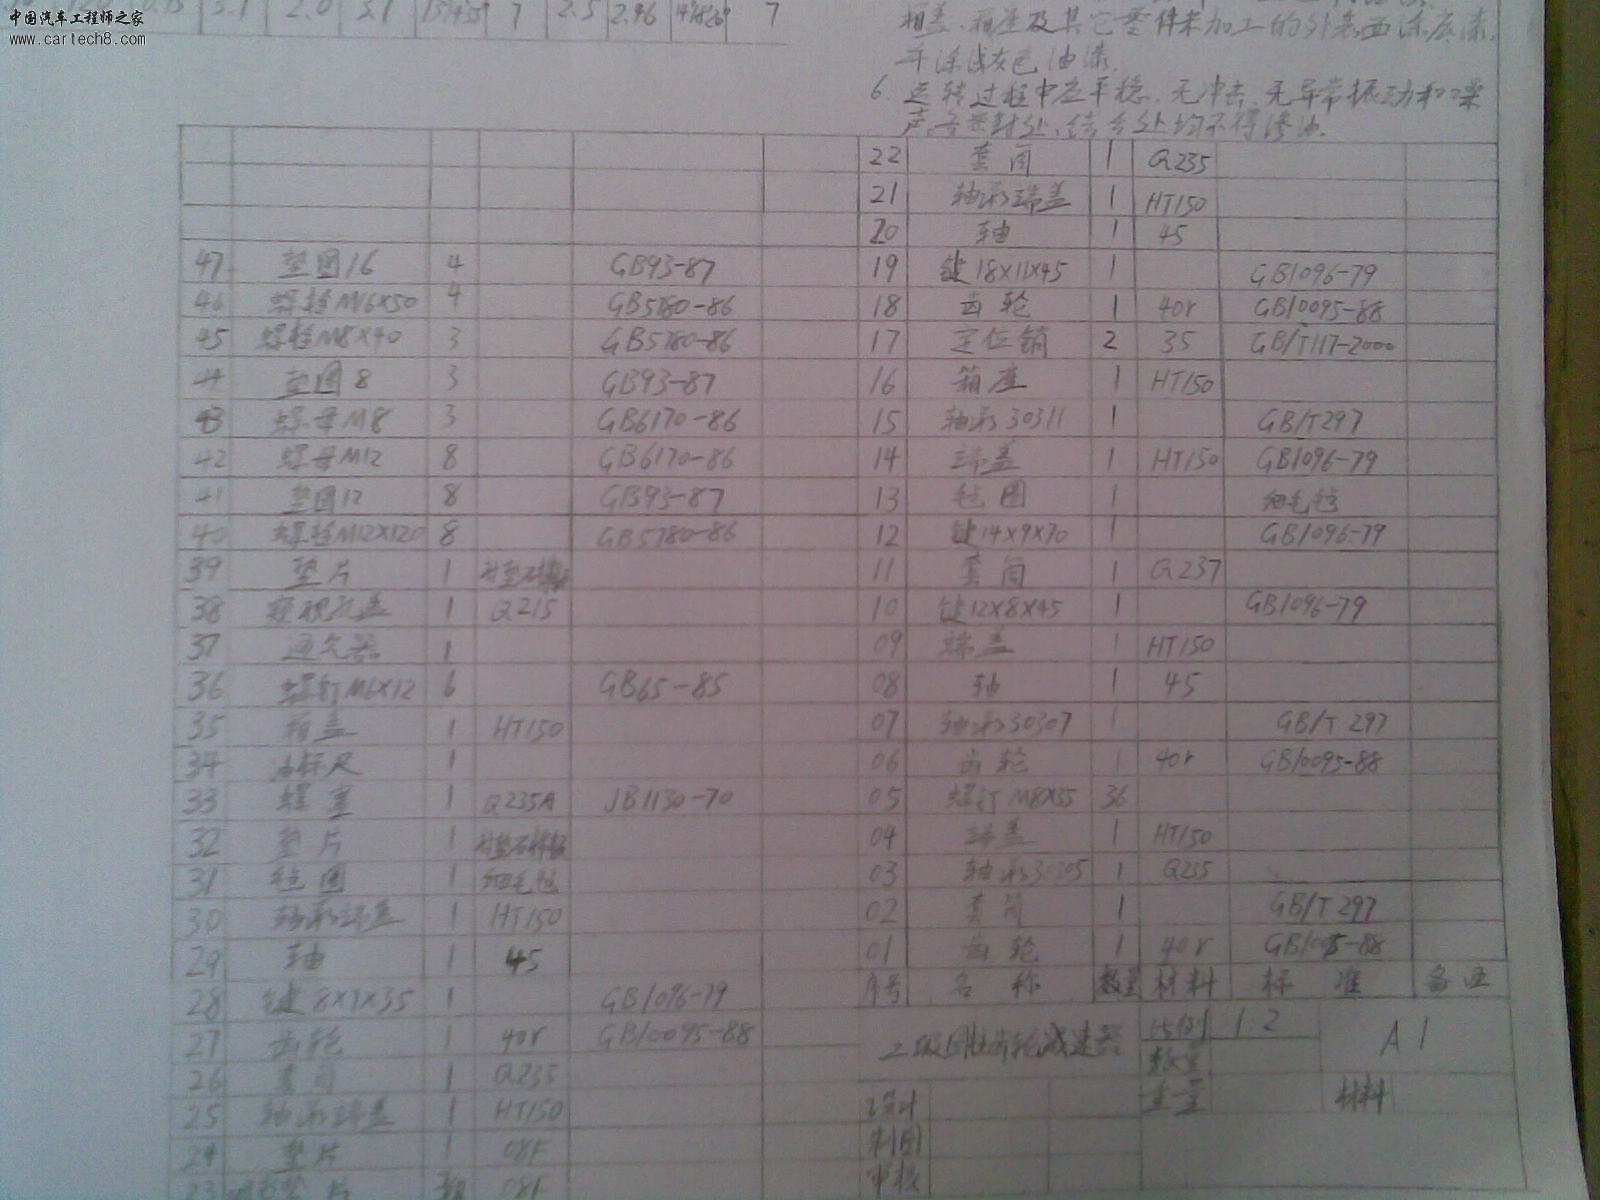 中国汽车工程师之家
www.cartech8.com
3.1 2.0 3.1 7 2.5 2.96 7
箱盖、箱座及其它零件未加工的外表面涂底漆,
并涂浅灰色油漆.
6. 运转过程中应平稳、无冲击、无异常振动和噪
声.各密封处、结合处均不得渗油.
22 套筒 1 Q235
21 轴承端盖 1 HT150
20 轴 1 45
47 垫圈16 4 GB93-87 19 键18X11X45 1 GB1096-79
46 螺栓M16X50 4 GB5780-86 18 齿轮 1 40r GB10095-88
45 螺栓M8X40 3 GB5780-86 17 定位销 2 35 GB/T117-2000
44 垫圈8 3 GB93-87 16 箱座 1 HT150
43 螺母M8 3 GB6170-86 15 轴承30311 1 GB/T297
42 螺母M12 8 GB6170-86 14 端盖 1 HT150 GB1096-79
41 垫圈12 8 GB93-87 13 毡圈 1 细毛毡
40 螺栓M12X120 8 GB5780-86 12 键14X9X70 1 GB1096-79
39 垫片 1 11 套筒 1 Q237
38 窥视孔盖 1 Q215 10 键12X8X45 1 GB1096-79
37 通气器 1 09 端盖 1 HT150
36 螺钉M6X12 6 GB65-85 08 轴 1 45
35 箱盖 1 HT150 07 轴承30307 1 GB/T297
34 油标尺 1 06 齿轮 1 40r GB10095-88
33 螺塞 1 Q235A JB1130-70 05 螺钉M8X35 36
32 垫片 1 04 端盖 1 HT150
31 毡圈 1 细毛毡 03 轴承30305 1 Q235
30 轴承端盖 1 HT150 02 套筒 1 GB/T297
29 轴 1 45 01 齿轮 1 40r GB10095-88
28 键8X7X35 1 GB1096-79 序号 名称 数量 材料 标准 备注
27 齿轮 1 40r GB10095-88 二级圆柱齿轮减速器 比例 1:2 A1
26 套筒 1 Q235 数量
25 轴承端盖 1 HT150 设计 重量 材料
24 垫片 1 08F 制图
23 垫片 08F 审核